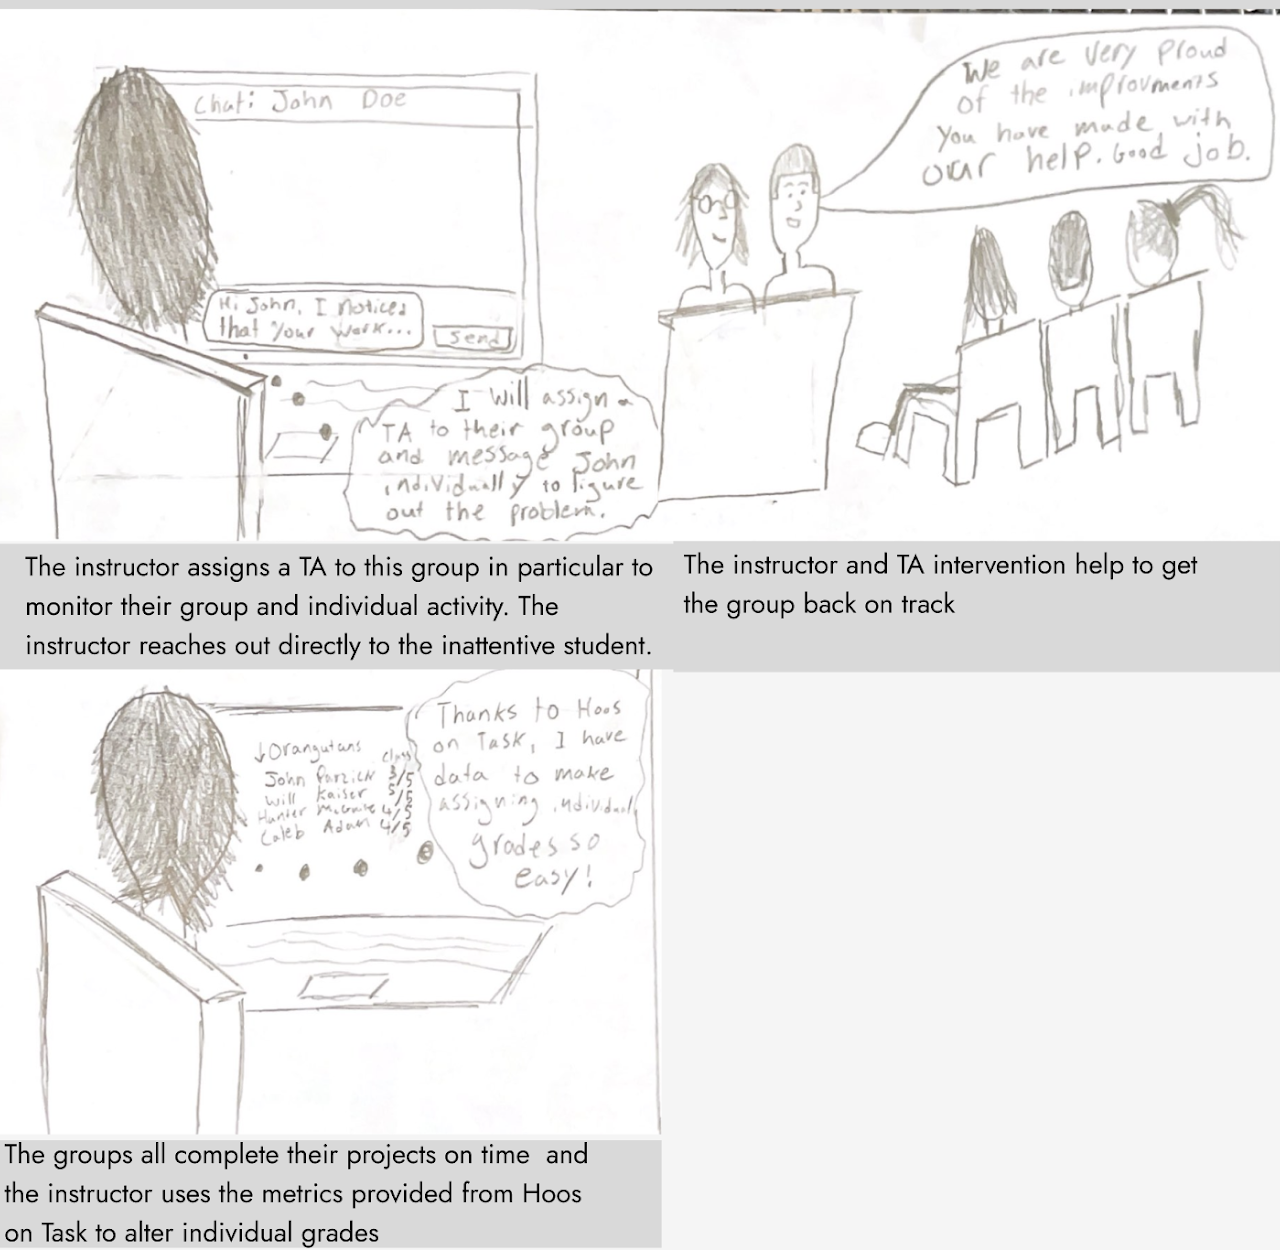 Chat: John Doe
Hi John, I notices
that your work...
Send
I will assign a
TA to their group
and message John
individually to figure
out the problem.
We are very proud
of the improvments
you have made with
our help. Good job.
The instructor assigns a TA to this group in particular to
monitor their group and individual activity. The
instructor reaches out directly to the inattentive student.
The instructor and TA intervention help to get
the group back on track
↓Orangutans
John 3/5
Will Kaiser 5/5
Hunter 4/5
Caleb Adam 4/5
Thanks to Hoos
on Task, I have
data to make
assigning individual
grades so
easy!
The groups all complete their projects on time and
the instructor uses the metrics provided from Hoos
on Task to alter individual grades